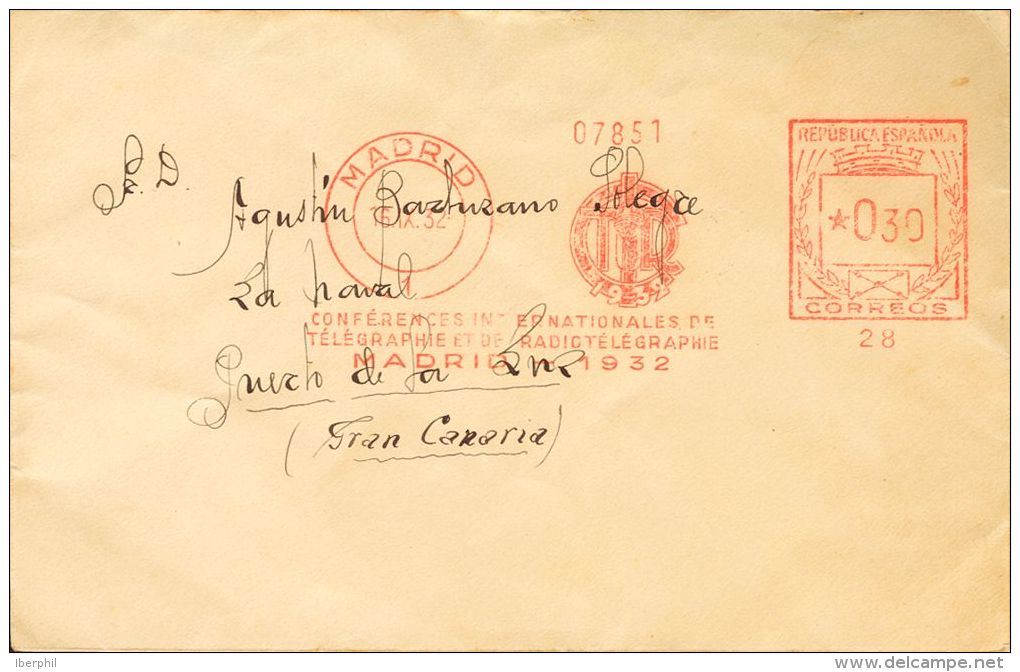 07851
REPÚBLICA ESPAÑOLA
MADRID
Sr. D.
Agustín Barturano
16.IX.32
*030
1932
La Naval
CORREOS
CONFÉRENCES INTERNATIONALES DE
TÉLÉGRAPHIE ET DE RADIOTÉLÉGRAPHIE
28
MADRID 1932
Puerto de la Luz
(Gran Canaria)
Iberphil
delcampe.net